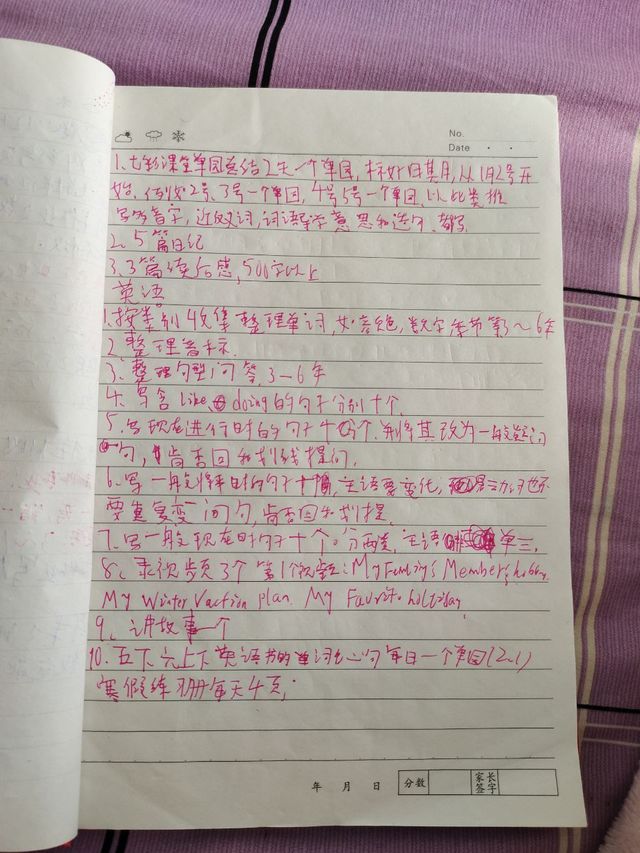 No.
Date
1.七彩课堂单园总结2天一个单园,标好日其月,从1月2号开
始.例如2号、3号一个单园,4号5号一个单园,以此类推
写的音字,近反义词,词语解字意思和造句.都写
2、5篇日记
3.3篇读后感,500字以上
英语
1.按类别收集整理单词,如:颜色,数字季节等3~6年
2.整理音标.
3.整理句型问答,3-6年
4.写含like doing的句子分别十个.
5.写现在进行时的句子十个.并将其改为一般疑问
句,肯否回和划线提问.
6.写一般将来时的句子十個,主语要变化,
要重复变问句,肯否回和划提.
7.写一般现在时句子十个.分两类,主语 单三.
8、录视步页3个 第1个视频:My Family's Members hobby
My Winter Vaction plan. My Favorito holtday
9、讲故事一个
10.五下六上下英语书的单词 句每日一个单园(2.1)
寒假练习册每天4页;
年 月 日
分数
家长签字